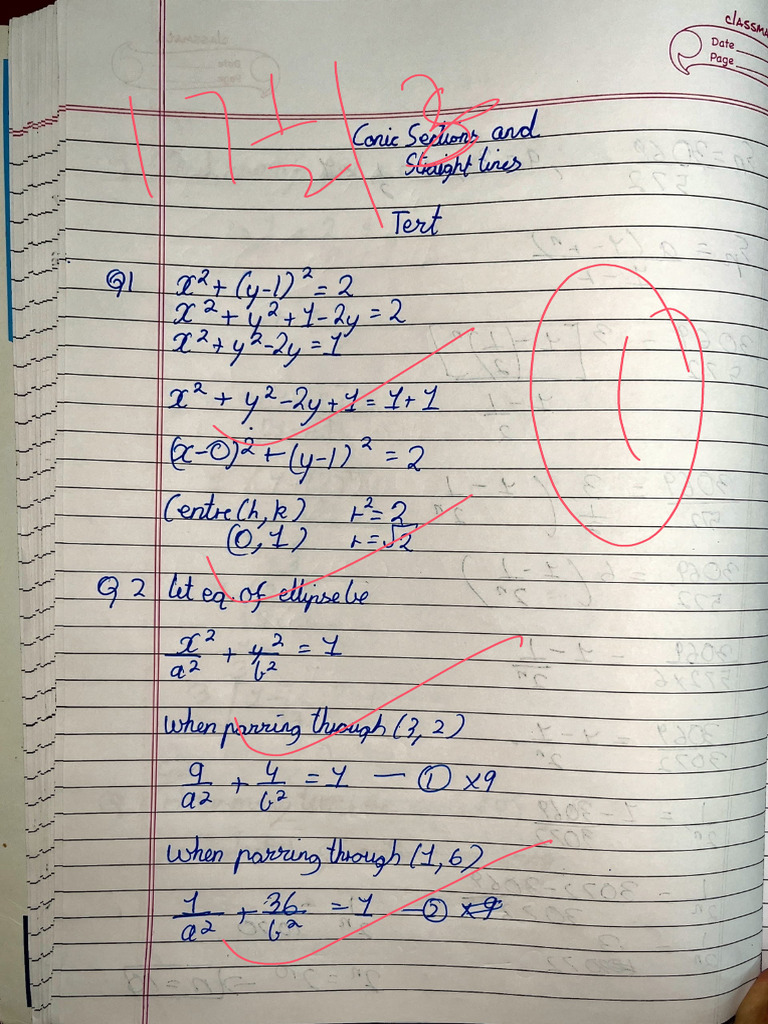 classma
Date
Page
17 1/2 /
Conic Sections and
Straight lines
Test
Q1 x² + (y-1)² = 2
x² + y² + 1 - 2y = 2
x² + y² - 2y = 1
x² + y² - 2y + 1 = 1 + 1
(x-0)² + (y-1)² = 2
Centre (h, k) r² = 2
(0, 1) r = √2
Q 2 let eq. of ellipse be
x²/a² + y²/b² = 1
when passing through (3, 2)
9/a² + 4/b² = 1 — ① ×9
when passing through (1, 6)
1/a² + 36/b² = 1 — ②